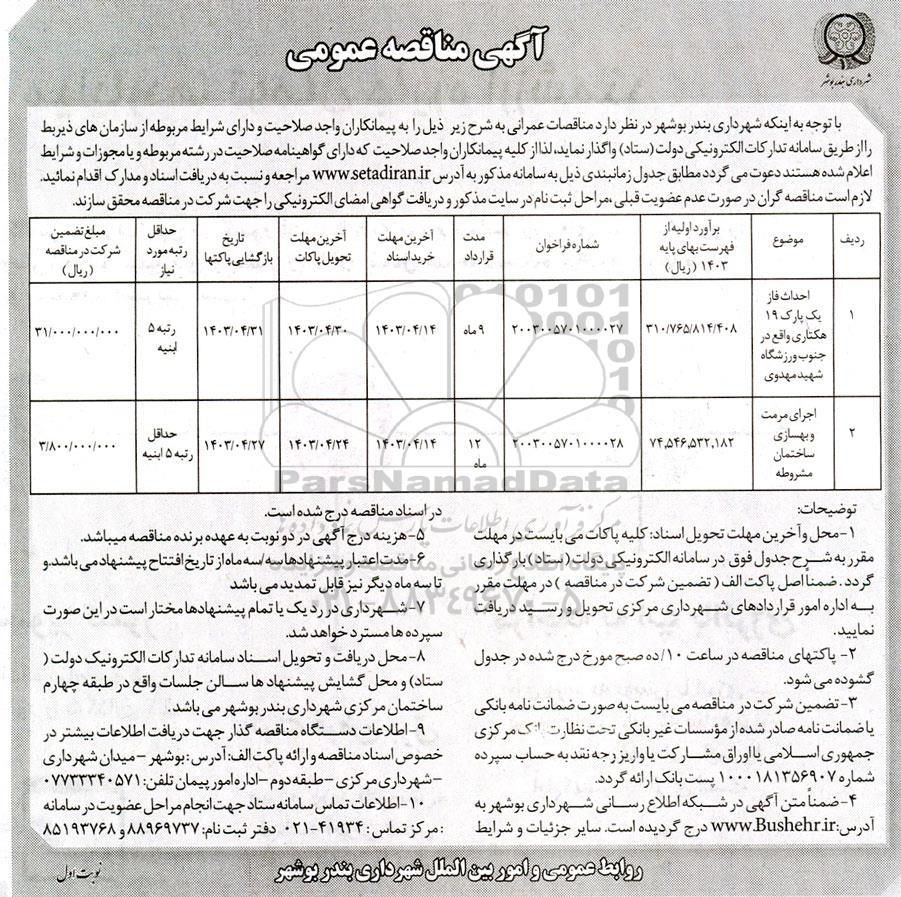 آگهی مناقصه عمومی
شهرداری بندر بوشهر
با توجه به اینکه شهرداری بندر بوشهر در نظر دارد مناقصات عمرانی به شرح زیر ذیل را به پیمانکاران واجد صلاحیت و دارای شرایط مربوطه از سازمان های ذیربط
را از طریق سامانه تدارکات الکترونیکی دولت (ستاد) واگذار نماید، لذا از کلیه پیمانکاران واجد صلاحیت که دارای گواهینامه صلاحیت در رشته مربوطه و یا مجوزات و شرایط
اعلام شده هستند دعوت می گردد مطابق جدول زمانبندی ذیل به سامانه مذکور به آدرس www.setadiran.ir مراجعه و نسبت به دریافت اسناد و مدارک اقدام نمائید.
لازم است مناقصه گران در صورت عدم عضویت قبلی ،مراحل ثبت نام در سایت مذکور و دریافت گواهی امضای الکترونیکی را جهت شرکت در مناقصه محقق سازند.
ردیف | موضوع | برآورد اولیه از فهرست بهای پایه ۱۴۰۳ (ریال) | شماره فراخوان | مدت قرارداد | آخرین مهلت خرید اسناد | آخرین مهلت تحویل پاکات | تاریخ بازگشایی پاکتها | حداقل رتبه مورد نیاز | مبلغ تضمین شرکت در مناقصه (ریال)
۱ | احداث فاز یک پارک ۱۹ هکتاری واقع در جنوب ورزشگاه شهید مهدوی | ۳۱۰/۷۶۵/۸۱۴/۴۰۸ | ۲۰۰۳۰۰۵۷۰۱۰۰۰۰۲۷ | ۹ ماه | ۱۴۰۳/۰۴/۱۴ | ۱۴۰۳/۰۴/۳۰ | ۱۴۰۳/۰۴/۳۱ | رتبه ۵ ابنیه | ۳۱/۰۰۰/۰۰۰/۰۰۰
۲ | اجرای مرمت و بهسازی ساختمان مشروطه | ۷۴,۵۴۶,۵۳۲,۱۸۲ | ۲۰۰۳۰۰۵۷۰۱۰۰۰۰۲۸ | ۱۲ ماه | ۱۴۰۳/۰۴/۱۴ | ۱۴۰۳/۰۴/۲۴ | ۱۴۰۳/۰۴/۲۷ | حداقل رتبه ۵ ابنیه | ۳/۸۰۰/۰۰۰/۰۰۰
ParsNamadData
توضیحات:
۱-محل و آخرین مهلت تحویل اسناد: کلیه پاکات می بایست در مهلت
مقرر به شرح جدول فوق در سامانه الکترونیکی دولت (ستاد) بارگذاری
گردد . ضمناً اصل پاکت الف ( تضمین شرکت در مناقصه ) در مهلت مقرر
به اداره امور قراردادهای شهرداری مرکزی تحویل و رسید دریافت
نمایید.
۲- پاکتهای مناقصه در ساعت ۱۰/ده صبح مورخ درج شده در جدول
گشوده می شود.
۳-تضمین شرکت در مناقصه می بایست به صورت ضمانت نامه بانکی
یا ضمانت نامه صادر شده از مؤسسات غیر بانکی تحت نظارت بانک مرکزی
جمهوری اسلامی یا اوراق مشارکت یا واریز رجه نقد به حساب سپرده
شماره ۱۰۰۰۱۸۱۳۵۶۹۰۷ پست بانک ارائه گردد.
۴-ضمناً متن آگهی در شبکه اطلاع رسانی شهرداری بوشهر به
آدرس: www.Bushehr.ir درج گردیده است. سایر جزئیات و شرایط
در اسناد مناقصه درج شده است.
۵-هزینه درج آگهی در دو نوبت به عهده برنده مناقصه میباشد.
۶-مدت اعتبار پیشنهادها سه/سه ماه از تاریخ افتتاح پیشنهاد می باشد.و
تا سه ماه دیگر نیز قابل تمدید می باشد
۷-شهرداری در رد یک یا تمام پیشنهادها مختار است در این صورت
سپرده ها مسترد خواهد شد.
۸-محل دریافت و تحویل اسناد سامانه تدارکات الکترونیک دولت (
ستاد) و محل گشایش پیشنهاد ها سالن جلسات واقع در طبقه چهارم
ساختمان مرکزی شهرداری بندر بوشهر می باشد.
۹-اطلاعات دستگاه مناقصه گذار جهت دریافت اطلاعات بیشتر در
خصوص اسناد مناقصه و ارائه پاکت الف: آدرس : بوشهر -میدان شهرداری
-شهرداری مرکزی -طبقه دوم -اداره امور پیمان تلفن: ۰۷۷۳۳۳۴۰۵۷۱
۱۰-اطلاعات تماس سامانه ستاد جهت انجام مراحل عضویت در سامانه
:مرکز تماس : ۴۱۹۳۴-۰۲۱ دفتر ثبت نام: ۸۸۹۶۹۷۳۷ و ۸۵۱۹۳۷۶۸
روابط عمومی و امور بین الملل شهرداری بندر بوشهر
نوبت اول